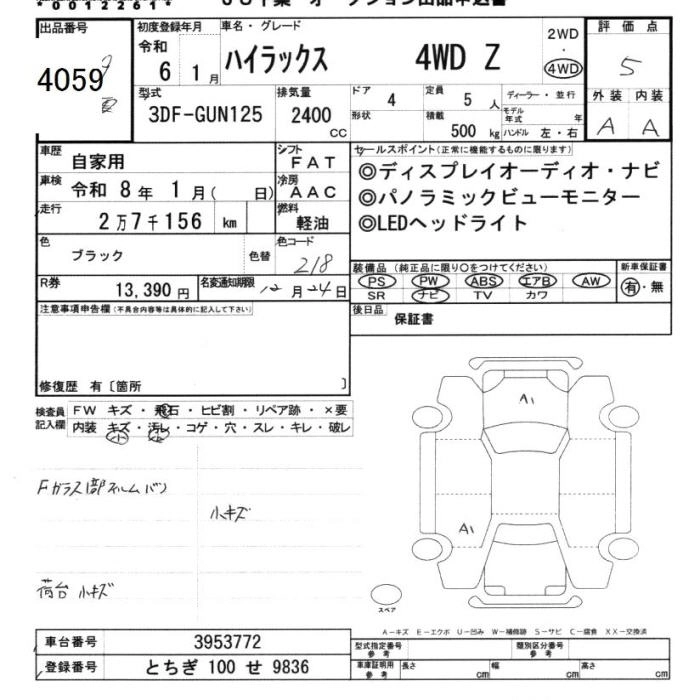 *00122261*
出品番号
4059
初度登録年月
令和
6 1月
車名・グレード
ハイラックス 4WD Z
2WD
・
4WD
評価点
5
外装 内装
A A
型式
3DF-GUN125
排気量
2400
CC
ドア
4
形状
定員
5人
積載
500 kg
ディーラー・並行
モデル年式 年
ハンドル 左・右
車歴
自家用
シフト
FAT
車検
令和 8年 1月( 日)
冷房
AAC
走行
2万7千156 km
燃料
軽油
色
ブラック
色替
色コード
218
R券
13,390円
名変通知期限
12月24日
セールスポイント(正常に機能するものに限ります)
◎ディスプレイオーディオ・ナビ
◎パノラミックビューモニター
◎LEDヘッドライト
装備品(純正品に限り○をつけてください)
PS PW ABS エアB AW
SR ナビ TV カワ
新車保証書
有・無
後日品
保証書
注意事項申告欄(不具合内容等は具体的に記入して下さい)
修復歴 有〔箇所 〕
検査員記入欄
FW キズ・飛石・ヒビ割・リペア跡・×要
内装 キズ・汚レ・コゲ・穴・スレ・キレ・破レ
小 小
Fガラス部フィルムバン
小キズ
荷台 小キズ
A1
A1
スペア
A-キズ E-エクボ U-凹み W-補修跡 S-サビ C-腐食 XX-交換済
車台番号
3953772
登録番号
とちぎ 100 せ 9836
型式指定番号
参考
類別区分番号
参考
車庫証明用
参考
長さ cm
幅 cm
高さ cm